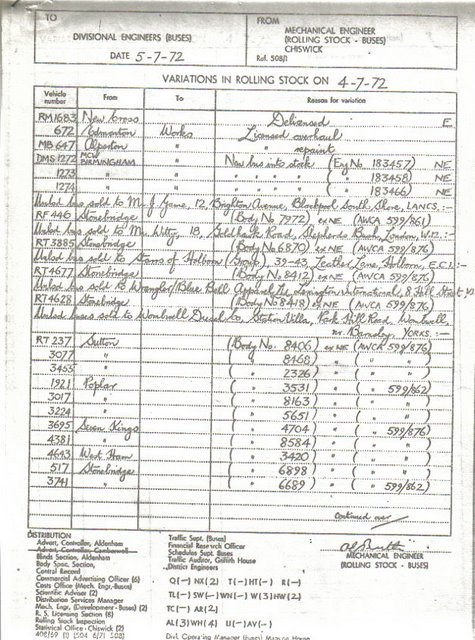 TO
FROM
DIVISIONAL ENGINEERS (BUSES)
MECHANICAL ENGINEER
(ROLLING STOCK - BUSES)
CHISWICK
DATE 5-7-72
Ref. 508/1
VARIATIONS IN ROLLING STOCK ON 4-7-72
Vehicle number From To Reason for variation
RM1683 New Cross Delicensed E
672 Edmonton Works Licensed overhaul
MB 647 Alperton " " repaint
DMS 1272 MCW BIRMINGHAM New bus into stock (Eng No 183457) NE
1273 " " " " " ( " " 183458) NE
1274 " " " " " ( " " 183466) NE
Unlic bus sold to Mr J. 12, Brighton Avenue, Blackpool South, Shore, LANCS. :-
RF 446 Stonebridge (Body No 7972) ex NE (AWCA 599/861)
Unlic bus sold to Mr 18, Goldhawk Road, Shepherds Bush, London, W.12. :-
RT3885 Stonebridge (Body No 6870) ex NE (AWCA 599/876)
Unlic bus sold to of Holborn (Group), 39-43, Leather Lane, Holborn, E.C.1. :-
RT4677 Stonebridge (Body No 8412) ex NE (AWCA 599/876)
Unlic bus sold to Wrangler/Blue Bell Apparel, International, 8 Hill Street
RT4628 Stonebridge (Body No 8418) ex NE (AWCA 599/876)
Unlic buses sold to Wombwell Diesel Co, Station Villa, Park Hill Road, Wombwell,
nr Barnsley, YORKS. :-
RT 237 Sutton (Body No. 8406) ex NE (AWCA 599/876)
3077 " ( " 8468) " ( " " )
3453 " ( " 2326) " ( " " )
1921 Poplar ( " 3531) " ( " 599/862)
3017 " ( " 8163) " ( " " )
3224 " ( " 5651) " ( " " )
3695 Seven Kings ( " 4704) " ( " 599/876)
4381 " ( " 8584) " ( " " )
4643 West Ham ( " 3420) " ( " " )
517 Stonebridge ( " 6898) " ( " " )
3741 " ( " 6689) " ( " 599/862)
Continued over
DISTRIBUTION
Advert. Controller, Aldenham
Advert. Controller Camberwell
Blinds Section, Aldenham
Body Spec. Section,
Central Record
Commercial Advertising Officer (6)
Costs Office (Mech. Engr.-Buses)
Scientific Adviser (2)
Distribution Services Manager
Mech. Engr. (Development - Buses) (2)
R. S. Licensing Section (8)
Rolling Stock Inspection
Statistical Office - Chiswick (2)
Traffic Supt. (Buses)
Financial Research Officer
Schedules Supt. Buses
Traffic Auditor, Griffith House
District Engineers
Q(-) NX(2) T(-) HT(-) R(-)
TL(-) SW(-) WN(-) W(3) HW(2)
TC(-) AR(2)
AL(3) WH(4) U(-) AV(-)
Divl. Operating Manager (Buses) House
MECHANICAL ENGINEER
(ROLLING STOCK - BUSES)